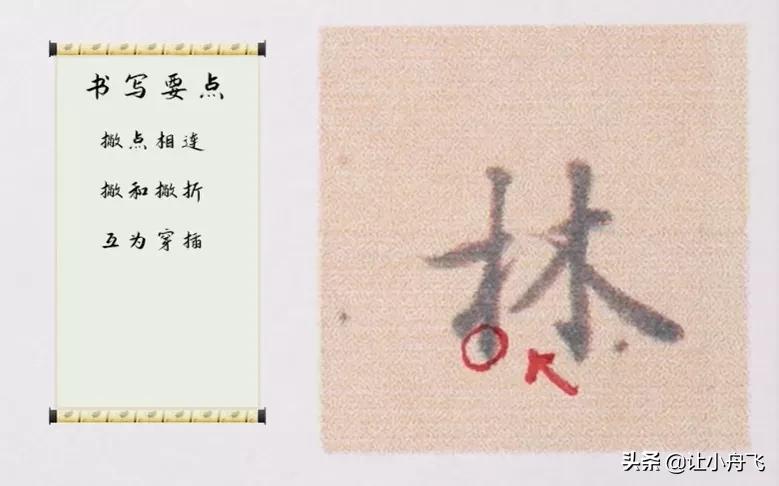 书写要点
撇点相连
撇和撇折
互为穿插
林
头条 @让小舟飞